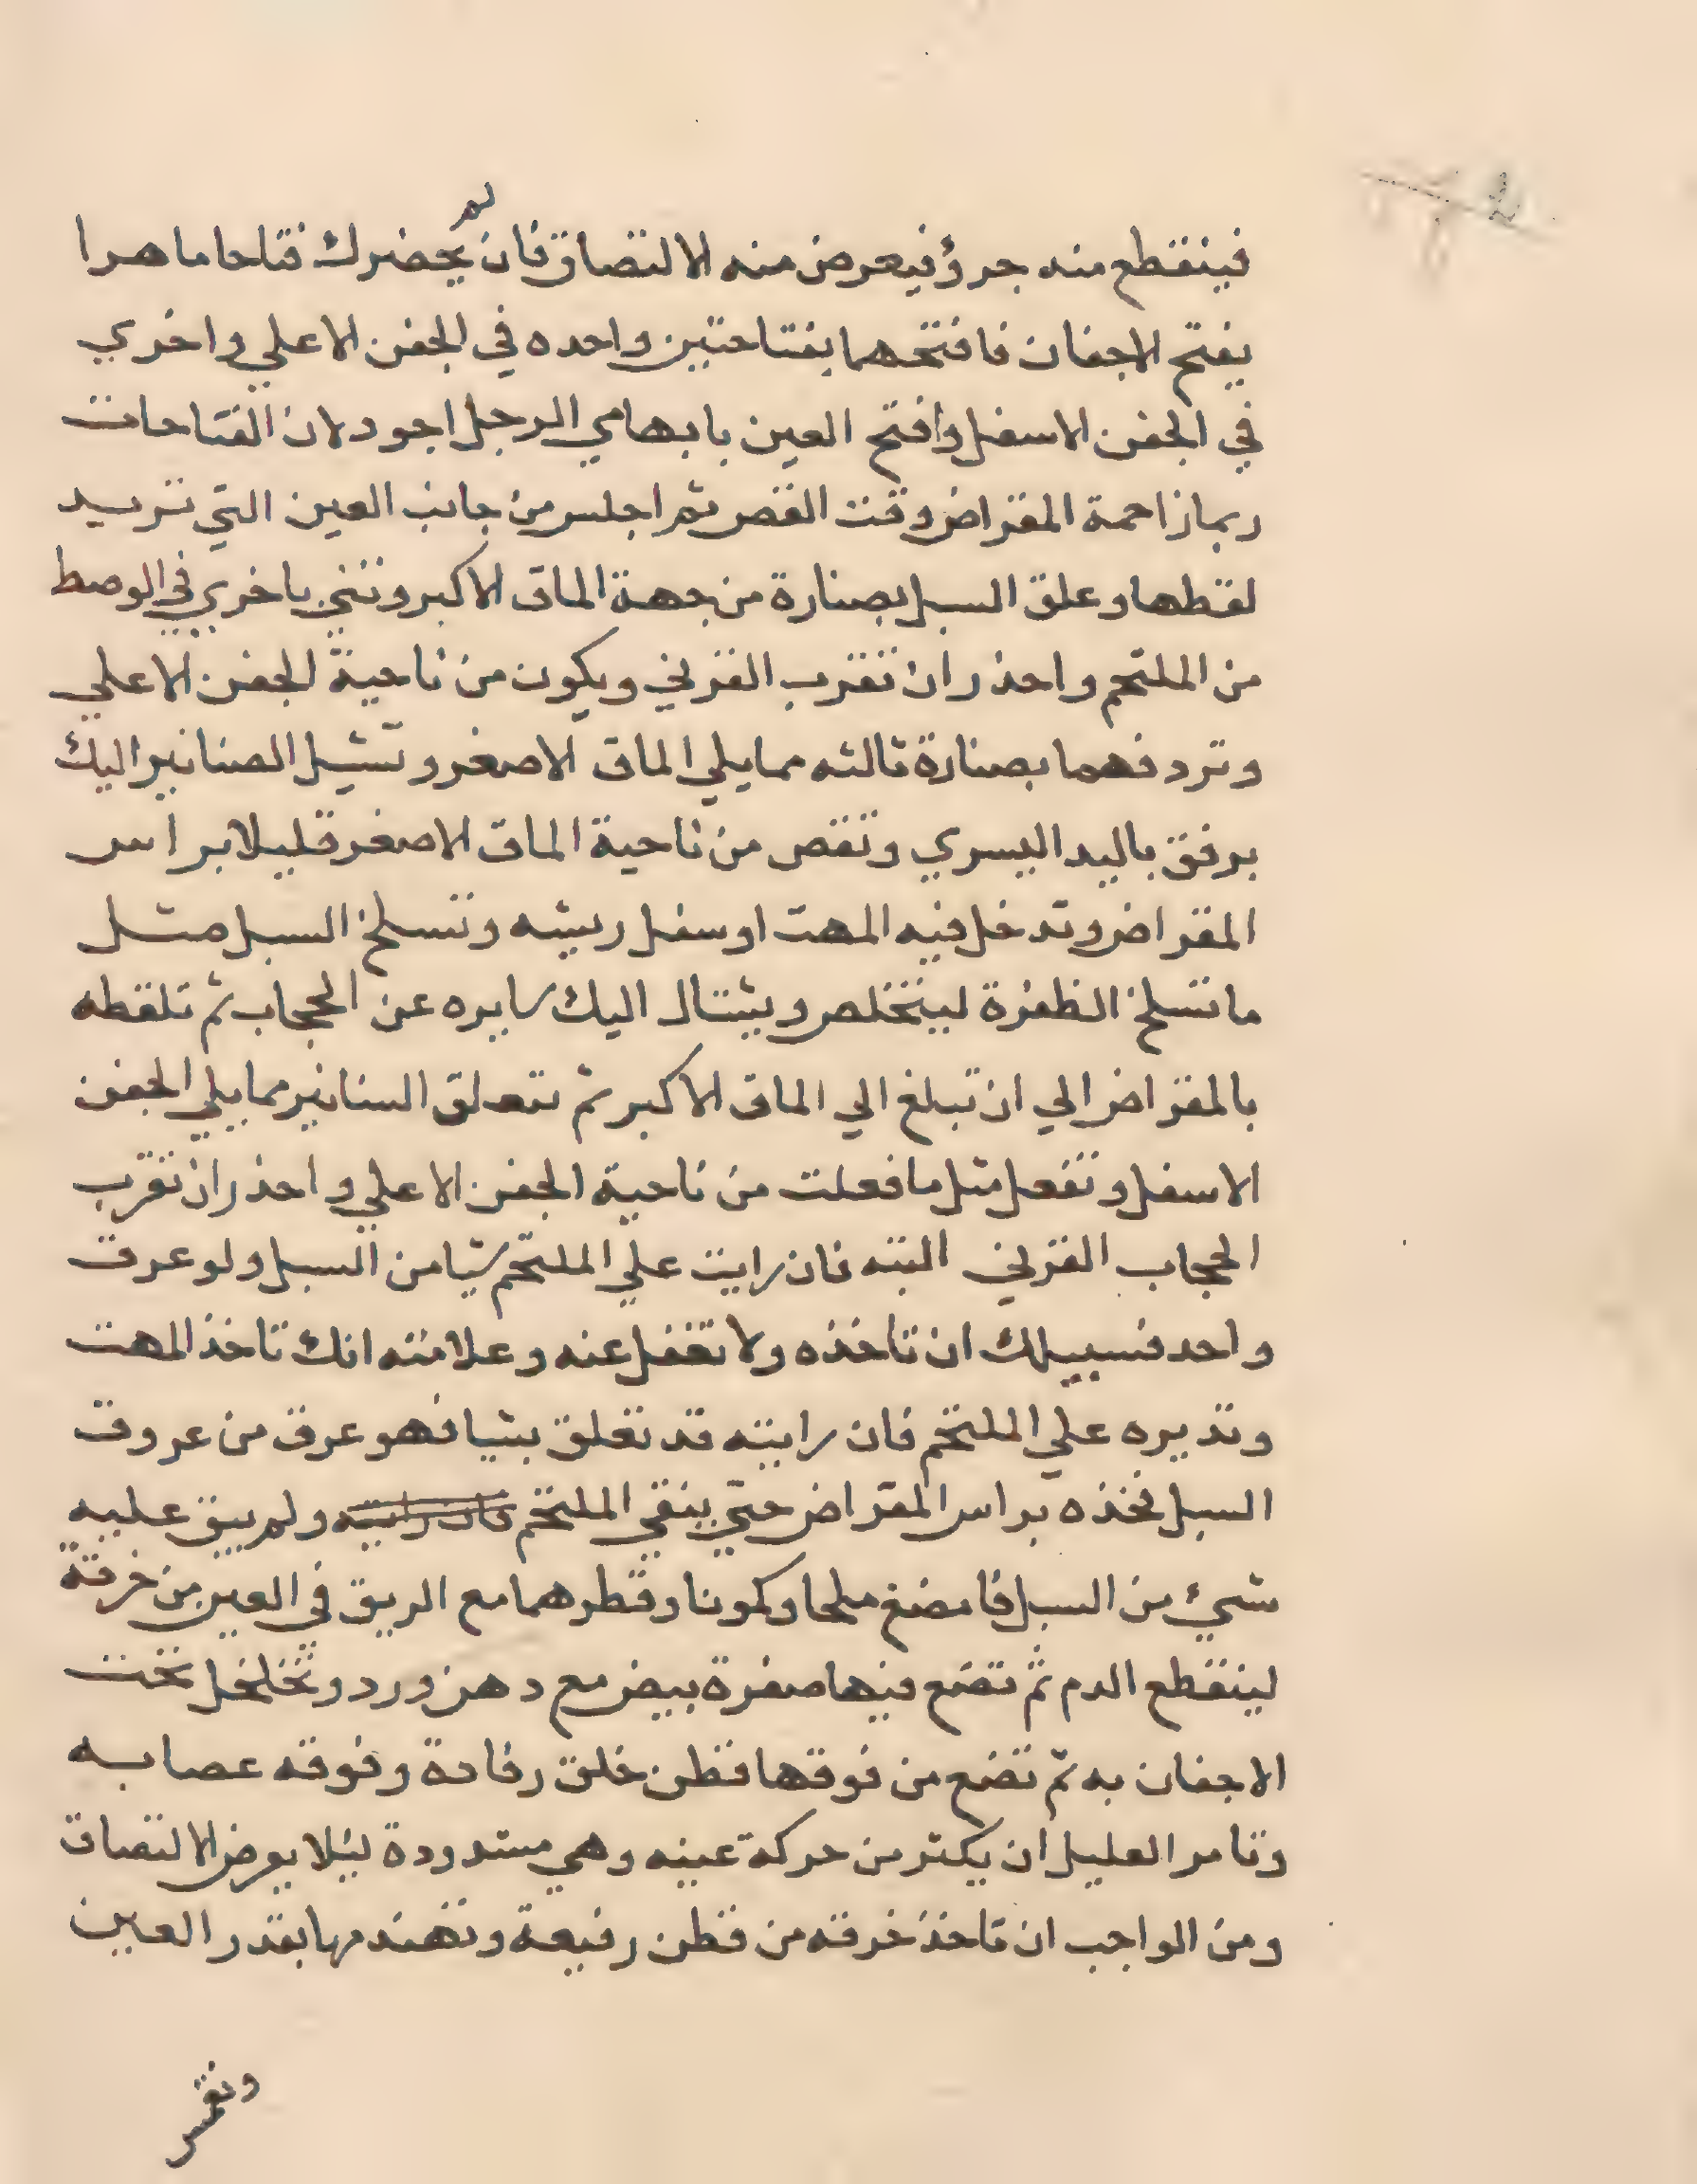 فينقطع منه جرؤ فيعرض منه الالتصاق فان لم يحضرك فتاحا ماهرا
يفتح الاجفان فافتحهما بفتاحتين واحده في الجفن الاعلي واخري
في الجفن الاسفل وافتح العين بابهامي الرجل اجود لان الفتاحات
ربما زاحمة المقراض وقت القص ثم اجلس من جانب العين التي تريد
لقطها وعلق السبل بصنارة من جهة الماق الاكبر وتثني باخري في الوصط
من الملتحم واحذر ان تقرب القرني ويكون من ناحية الجفن الاعلي
وتردفهما بصنارة ثالثه مما يلي الماق الاصغر وتشيل الصنانير اليك
برفق باليد اليسري وتقص من ناحية الماق الاصغر قليلا براس
المقراض وتدخل فيه المهت او سفل ريشه وتسلخ السبل مثل
ما تسلخ الظفرة ليتخلص ويشتال اليك سايره عن الحجاب ثم تلقطه
بالمقراض الي ان تبلغ الي الماق الاكبر ثم تتعلق السنانير مما يلي الجفن
الاسفل وتفعل مثل ما فعلت من ناحية الجفن الاعلي واحذر ان تقرب
الحجاب القرني البته فان رايت علي الملتحم شيا من السبل ولو عرق
واحد فسبيلك ان تاخذه ولا تغفل عنه وعلامته انك تاخذ المهت
وتديره علي الملتحم فان رايته قد تعلق بشيا فهو عرق من عروق
السبل فخذه براس المقراض حتي ينقي الملتحم فان رايته ولم يبق عليه
شيئ من السبل فامضغ ملحا وكمونا وقطرهما مع الريق في العين من خرقة
لينقطع الدم ثم تضع فيها صفرة بيض مع دهن ورد وتخلخل تحت
الاجفان به ثم تضع من فوقها قطن خلق رفادة وفوقه عصابه
وتامر العليل ان يكثر من حركة عينه وهي مشدودة ليلا يعرض الالتصاق
ومن الواجب ان تاخذ خرقه من قطن رفيعة وتهندمها بقدر العين